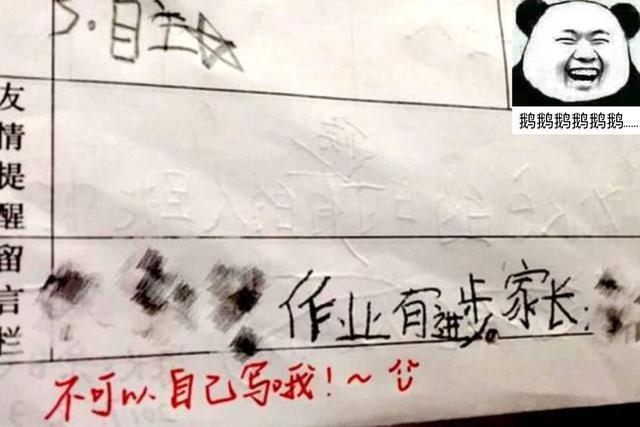 5.自主
鹅鹅鹅鹅鹅鹅……
友情提醒
留言栏
作业有进步。家长:
不可以自己写哦!~